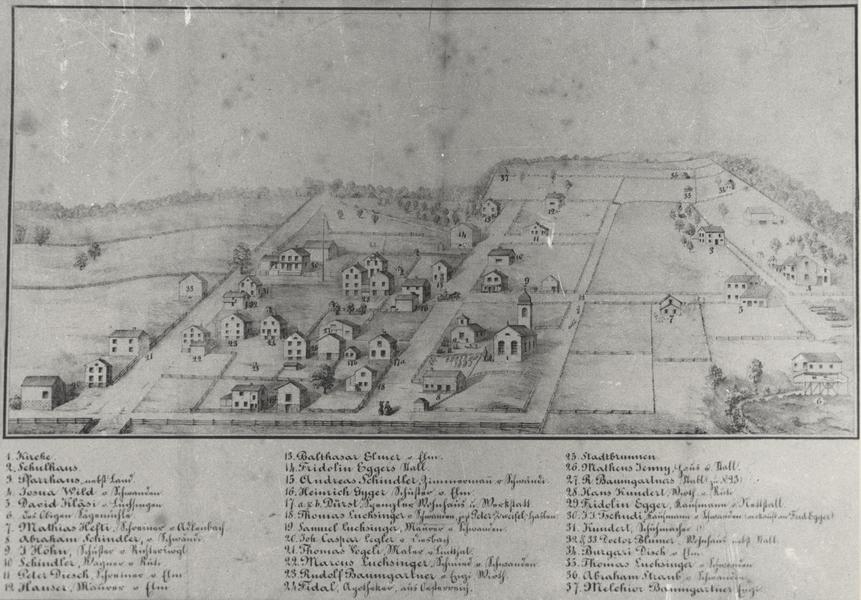 1. Kirche.
2. Schulhaus.
3. Pfarrhaus, nebst Land.
4. Josua Wild v. Schwanden.
5. David Kläsi v. Luchsingen
6. des Obigen Sägemühle.
7. Mathias Hefti, Schreiner v.
8. Abraham Schindler, v. Schwanden.
9. J Höhn, Schuster v.
10. Schindler, Wagner v. Rüti.
11. Peter Disch, Schreiner v. Elm
12. Hauser, Maurer v. Elm.
13. Balthasar Elmer v. Elm.
14. Fridolin Eggers Stall.
15. Andreas Schindler, Zimmermann v. Schwanden.
16. Heinrich Gyger, Schuster v. Elm.
17 a. & b. Dürst, Spengler Wohnhaus u. Werkstatt
18. Thomas Luchsinger v. Schwanden,
19. Samuel Luchsinger, Maurer v. Schwanden.
20. Joh. Caspar Legler v. Diesbach
21. Thomas Vogeli, Maler v. Linthal.
22. Marcus Luchsinger, Schmied v. Schwanden
23. Rudolf Baumgartner v. Engi Wirth
24. Fidal, Apotheker, aus Oesterreich.
25. Stadtbrunnen
26. Matheus Jenny, Haus u. Stall.
27. R. Baumgartners Stall
28. Hans Kundert, Wirth v. Rüti
29. Fridolin Egger, Kaufmann v.
30. J. J. Tschudi, Kaufmann v. Schwanden
31. Kundert, Schumacher
32 & 33. Doctor Blumer, Wohnhaus nebst Stall.
34. Burgari Disch v. Elm
35. Thomas Luchsinger v. Schwanden
36. Abraham Straub v. Schwanden
37. Melchior Baumgartner Engi.